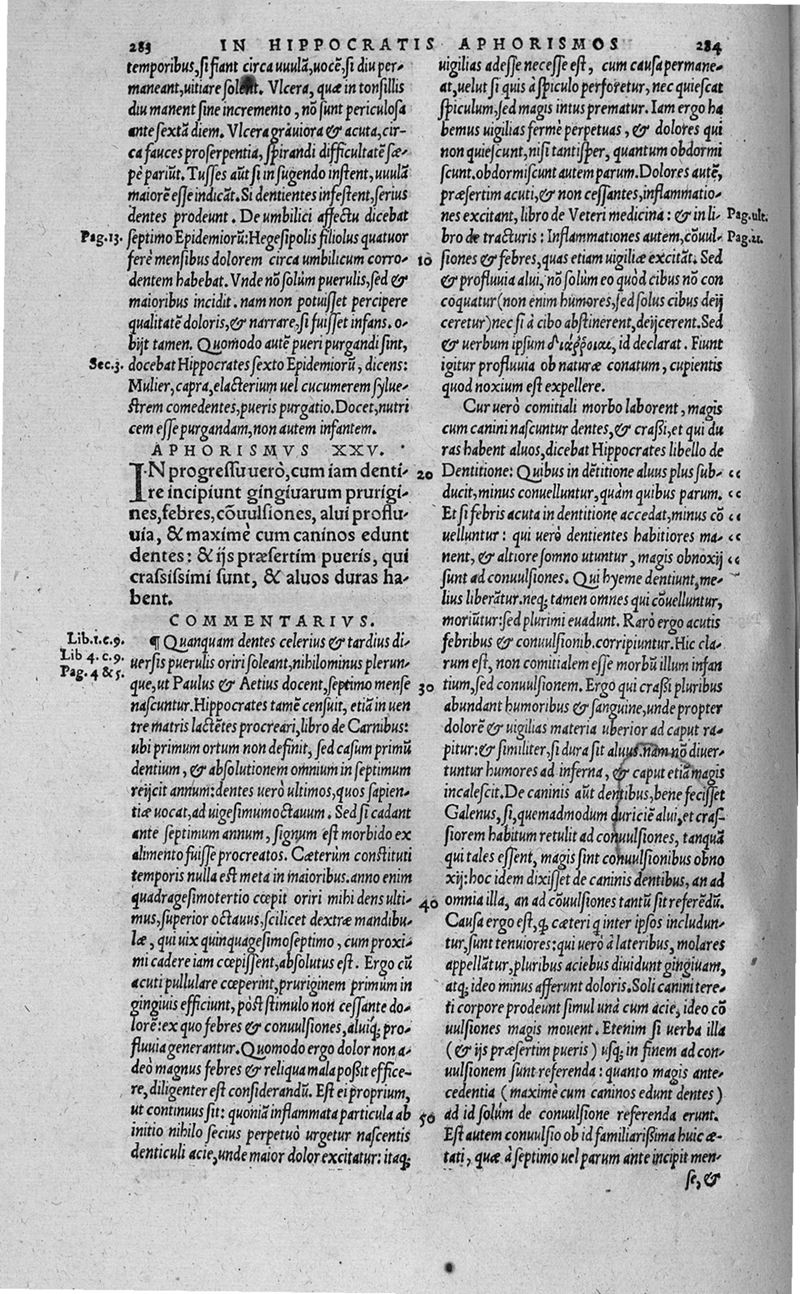 283 IN HIPPOCRATIS APHORISMOS 284
temporibus, si fiant circa uuulã, uocẽ, si diu per-
maneant, uitiare solent. Vlcera, quæ in tonsillis
diu manent sine incremento, nõ sunt periculosa
ante sextã diem. Vlcera grauiora & acuta, cir-
ca fauces proserpentia, spirandi difficultatẽ sæ-
pè pariũt. Tusses aũt si in sugendo instent, uuulã
maiorẽ esse indicãt. Si dentientes infestent, serius
dentes prodeunt. De umbilici affectu dicebat
Pag. 13. septimo Epidemiorũ: Hegesipolis filiolus quatuor
ferè mensibus dolorem circa umbilicum corro-
dentem habebat. Vnde nõ solùm puerulis, sed &
maioribus incidit. nam non potuisset percipere
qualitatẽ doloris, & narrare, si fuisset infans. o-
bijt tamen. Quomodo autẽ pueri purgandi sint,
Sec. 3. docebat Hippocrates sexto Epidemiorũ, dicens:
Mulier, capra, elacterium uel cucumerem sylue-
strem comedentes, pueris purgatio. Docet, nutri
cem esse purgandam, non autem infantem.
APHORISMVS XXV.
IN progressu uerò, cum iam denti-
re incipiunt gingiuarum prurigi-
nes, febres, cõuulsiones, alui proflu-
uia, & maximè cum caninos edunt
dentes: & ijs præsertim pueris, qui
crassissimi sunt, & aluos duras ha-
bent.
COMMENTARIVS.
Lib. 1. c. 9. ¶ Quanquam dentes celerius & tardius di-
Lib 4. c. 9. uersis puerulis oriri soleant, nihilominus plerun-
Pag. 4 & 5. que, ut Paulus & Aetius docent, septimo mense
nascuntur. Hippocrates tamẽ censuit, etiã in uen
tre matris lactẽtes procreari, libro de Carnibus:
ubi primum ortum non definit, sed casum primũ
dentium, & absolutionem omnium in septimum
reijcit annum: dentes uerò ultimos, quos sapien-
tiæ uocat, ad uigesimumoctauum. Sed si cadant
ante septimum annum, signum est morbido ex
alimento fuisse procreatos. Cæterùm constituti
temporis nulla est meta in maioribus. anno enim
quadragesimotertio cœpit oriri mihi dens ulti-
mus, superior octauus, scilicet dextræ mandibu-
læ, qui uix quinquagesimoseptimo, cum proxi-
mi cadere iam cœpissent, absolutus est. Ergo cũ
acuti pullulare cœperint, pruriginem primùm in
gingiuis efficiunt, pòst stimulo non cessante do-
lorẽ: ex quo febres & conuulsiones, aluiq́; pro-
fluuia generantur. Quomodo ergo dolor non a-
deò magnus febres & reliqua mala poßit effice-
re, diligenter est considerandũ. Est ei proprium,
ut continuus sit: quoniã inflammata particula ab
initio nihilo secius perpetuò urgetur nascentis
denticuli acie, unde maior dolor excitatur: itaq;
uigilias adesse necesse est, cum causa permane-
at, uelut si quis à spiculo perforetur, nec quiescat
spiculum, sed magis intus prematur. Iam ergo ha
bemus uigilias fermè perpetuas, & dolores qui
non quiescunt, nisi tantisper, quantum obdormi
scunt. obdormiscunt autem parum. Dolores autẽ,
præsertim acuti, & non cessantes, inflammatio-
nes excitant, libro de Veteri medicina: & in li- Pag. ult.
bro de fracturis: Inflammationes autem, cõuul- Pag. 22.
10 siones & febres, quas etiam uigiliæ excitãt. Sed
& profluuia alui, nõ solùm eo quòd cibus nõ con
coquatur (non enim humores, sed solus cibus deij
ceretur) nec si à cibo abstinerent, deijcerent. Sed
& uerbum ipsum διάῤῥοιαι, id declarat. Fiunt
igitur profluuia ob naturæ conatum, cupientis
quod noxium est expellere.
Cur uerò comitiali morbo laborent, magis
cum canini nascuntur dentes, & craßi, et qui du
ras habent aluos, dicebat Hippocrates libello de
20 Dentitione: Quibus in dẽtitione aluus plus sub-
ducit, minus conuelluntur, quàm quibus parum.
Et si febris acuta in dentitione accedat, minus cõ
uelluntur: qui uerò dentientes habitiores ma-
nent, & altiore somno utuntur, magis obnoxij
sunt ad conuulsiones. Qui hyeme dentiunt, me-
lius liberãtur. neq; tamen omnes qui cõuelluntur,
moriũtur: sed plurimi euadunt. Rarò ergo acutis
febribus & conuulsionib. corripiuntur. Hic cla-
rum est, non comitialem esse morbũ illum infan
30 tium, sed conuulsionem. Ergo qui craßi pluribus
abundant humoribus & sanguine, unde propter
dolorẽ & uigilias materia uberior ad caput ra-
pitur: & similiter, si dura sit aluus. nam nõ diuer-
tuntur humores ad inferna, & caput etiã magis
incalescit. De caninis aũt dentibus, bene fecisset
Galenus, si, quemadmodum duriciẽ alui, et cras-
siorem habitum retulit ad conuulsiones, tanquã
qui tales essent, magis sint conuulsionibus obno
xij: hoc idem dixisset de caninis dentibus, an ad
40 omnia illa, an ad cõuulsiones tantũ sit referẽdũ.
Causa ergo est, q, cæteri q inter ipsos includun-
tur, sunt tenuiores: qui uerò à lateribus, molares
appellãtur, pluribus aciebus diuidunt gingiuam,
atq, ideo minus afferunt doloris. Soli canini tere-
ti corpore prodeunt simul unà cum acie, ideo cõ
uulsiones magis mouent. Etenim si uerba illa
(& ijs præsertim pueris) usq; in finem ad con-
uulsionem sunt referenda: quanto magis ante-
cedentia (maximè cum caninos edunt dentes)
50 ad id solùm de conuulsione referenda erunt.
Est autem conuulsio ob id familiarißima huic æ-
tati, quæ à septimo uel parum ante incipit men-
se, &